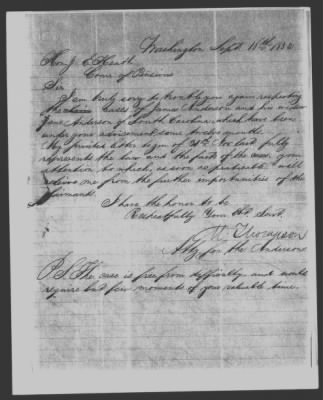 Washington Sept 11th 185
Hon J E Heath
Comr of Pensions
Sir
I am truly sorry to trouble you again respecting
the claim Cases of James Anderson and his widow
Jane Anderson of South Carolina which have been
under your advisement some twelve months.
My printed letter begun of 21st Nov last fully
represents the law and the facts of the case, your
attention to which, as soon as practicable will
relieve me from the further importunities of the
claimants.
I have the honor to be
Respectfully Your Ob. Servt.
Thompson
Atty for the Andersons
P.S. The case is free from difficulty and would
require but few moments of your valuable time.